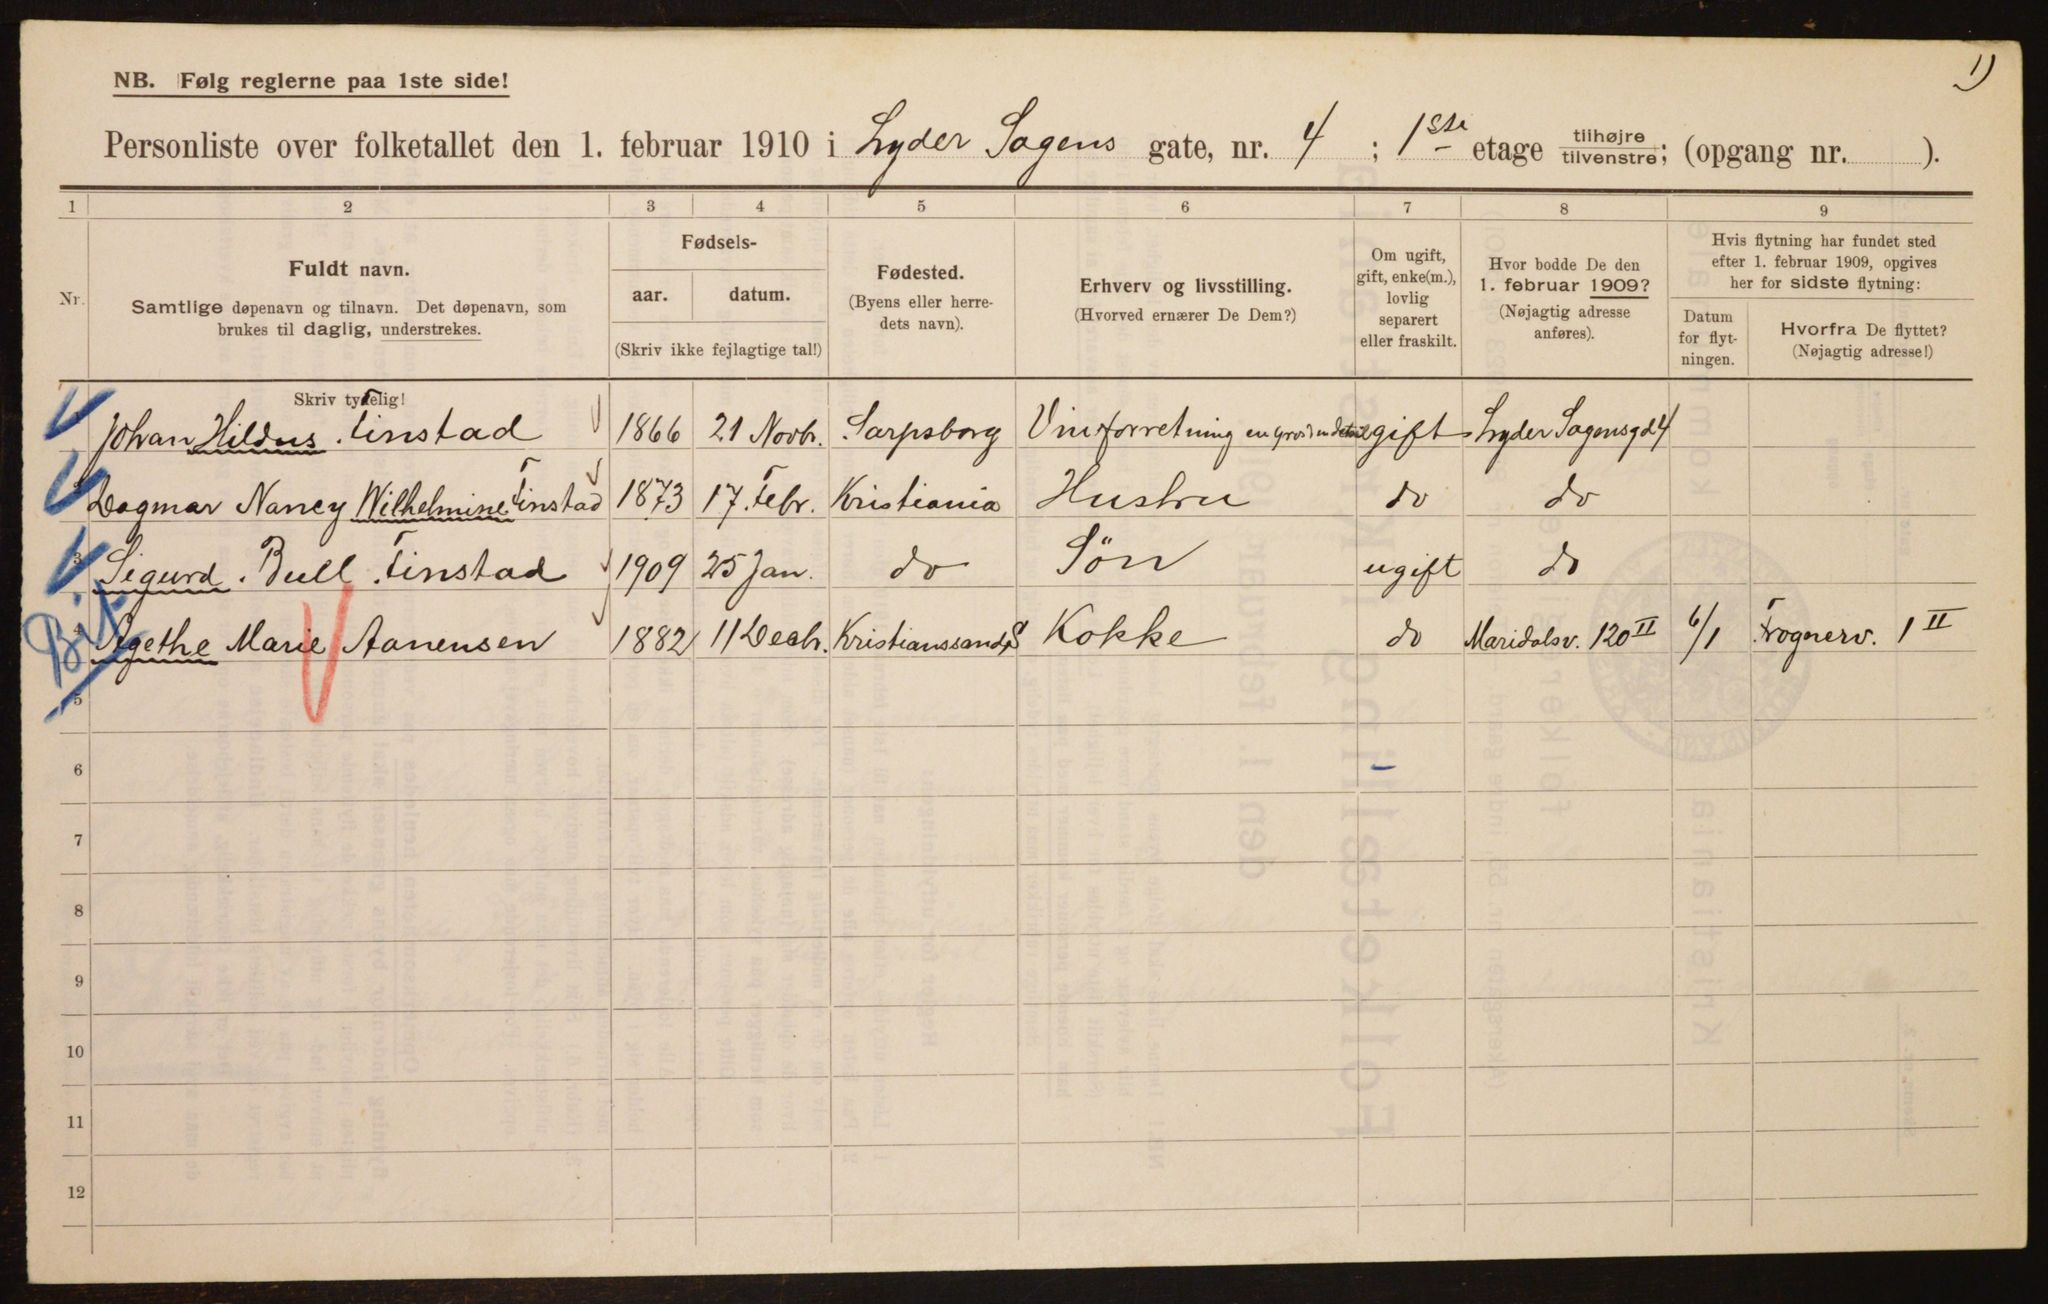 1)
NB. Følg reglerne paa 1ste side!
Personliste over folketallet den 1. februar 1910 i Lyder Sagens gate, nr. 4 ; 1ste etage tilhøjre tilvenstre; (opgang nr. ).
1 2 3 4 5 6 7 8 9
Nr.
Fuldt navn.
Samtlige døpenavn og tilnavn. Det døpenavn, som
brukes til daglig, understrekes.
Fødsels-
aar. datum.
(Skriv ikke fejlagtige tal!)
Fødested.
(Byens eller herre-
dets navn).
Erhverv og livsstilling.
(Hvorved ernærer De Dem?)
Om ugift,
gift, enke(m.),
lovlig
separert
eller fraskilt.
Hvor bodde De den
1. februar 1909?
(Nøjagtig adresse
anføres).
Hvis flytning har fundet sted
efter 1. februar 1909, opgives
her for sidste flytning:
Datum
for flyt-
ningen.
Hvorfra De flyttet?
(Nøjagtig adresse!)
Skriv tydelig!
Johan Hildus Finstad 1866 21 Novbr. Sarpsborg Vinforretning en gros en detail gift Lyder Sagensgd 4
Dagmar Nancy Wilhelmine Finstad 1873 17. Febr. Kristiania Hustru do do
3 Sigurd. Bull. Finstad 1909 25 Jan. do Søn ugift do
Bit.
4 Agethe Marie Aanensen 1882 11 Decbr. Kristianssand S Kokke do Maridalsv. 120 II 6/1 Frognerv. 1 II
5
6
7
8
9
10
11
12